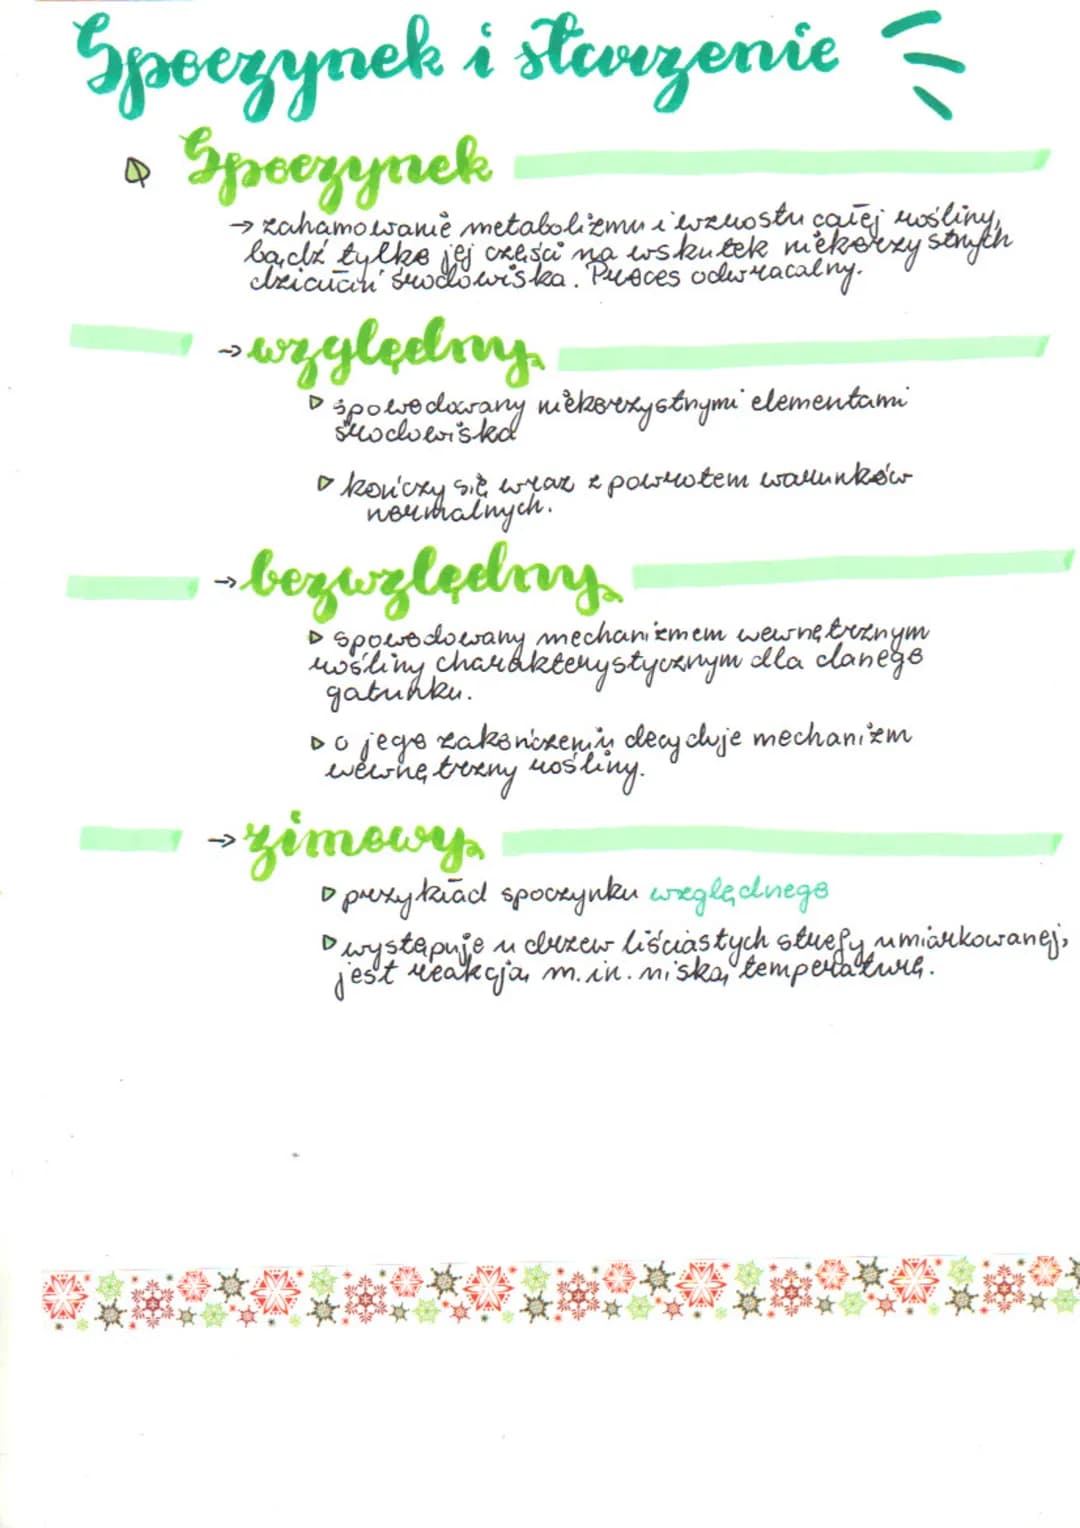 Spoczynek i starzenie
Spoczynek
→ zahamowanie metabolizmu i wzrostu całej rośliny,
bądź tylko jej części na wskutek niekorzystnych
działań środowiska. Proces odwracalny.
→ względny
▷ spowodowany niekorzystnymi elementami
środowiska
▷ kończy się wraz z powrotem warunków
normalnych.
→ bezwzględny
▷ spowodowany mechanizmem wewnętrznym
rośliny charakterystycznym dla danego
gatunku.
▷ o jego zakończeniu decyduje mechanizm
wewnętrzny rośliny.
→ zimowy
▷ przykład spoczynku względnego
▷ występuje u drzew liściastych strefy umiarkowanej,
jest reakcją m.in. niską temperaturę.